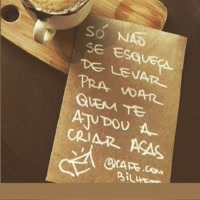 SÓ NÃO
SE ESQUEÇA
DE LEVAR
PRA VOAR
QUEM TE
AJUDOU A
CRIAR ASAS
@CAFE.COM
BILHETE